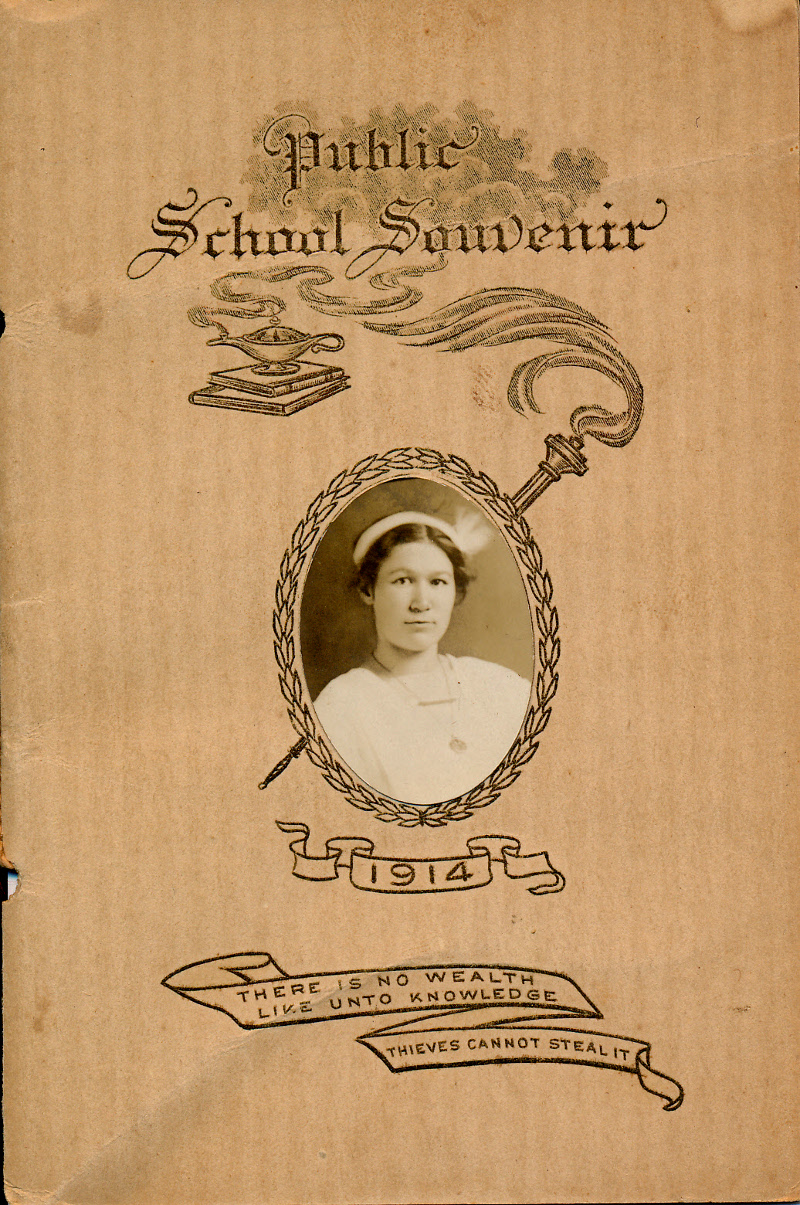 Public
School Souvenir
1914
THERE IS NO WEALTH
LIKE UNTO KNOWLEDGE
THIEVES CANNOT STEAL IT